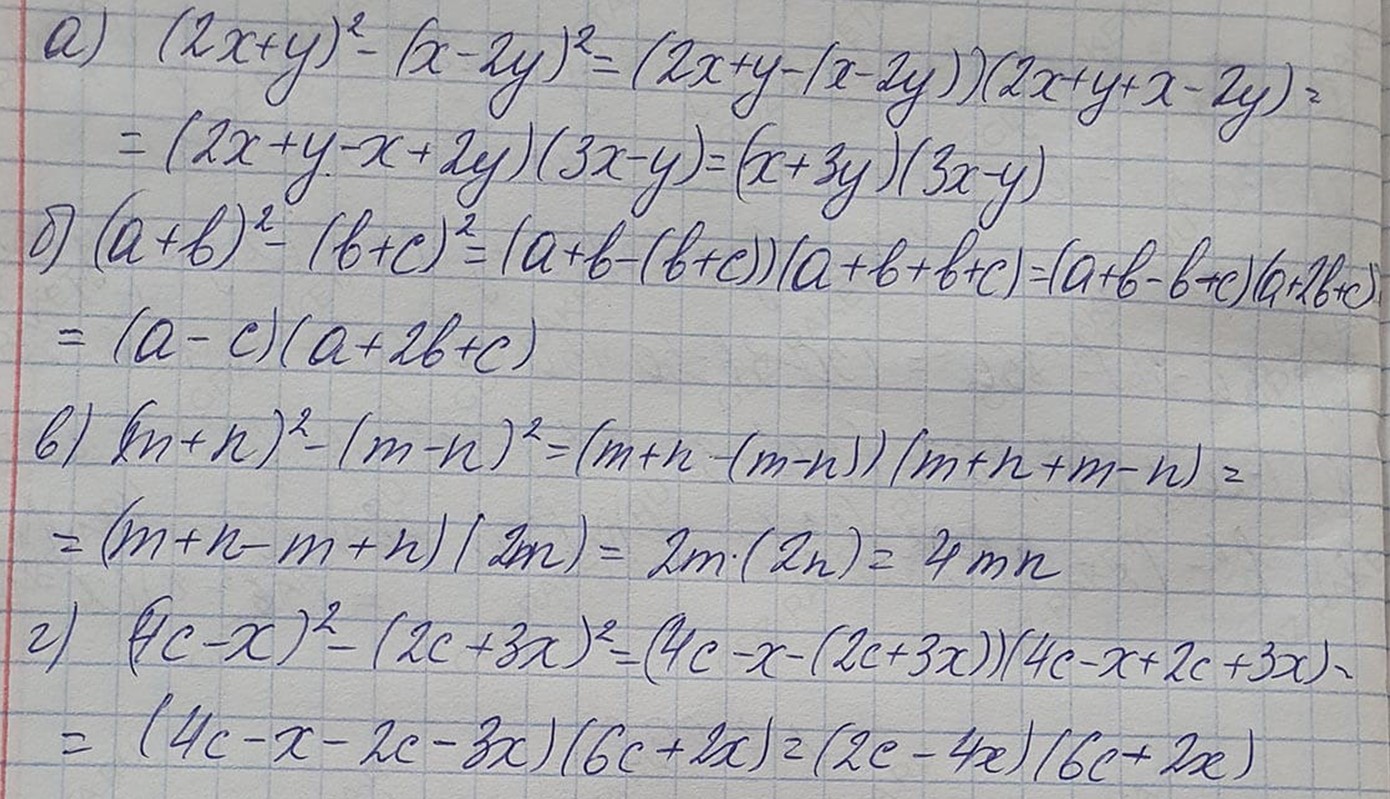 а) (2x+y)²- (x-2y)²=(2x+y-(x-2y))(2x+y+x-2y)=
= (2x+y-x+2y)(3x-y)=(x+3y)(3x-y)
б) (a+b)²- (b+c)²=(a+b-(b+c))(a+b+b+c)=(a+b-b+c)(a+2b+c)
= (a-c)(a+2b+c)
в) (m+n)²-(m-n)²=(m+n-(m-n))(m+n+m-n)=
= (m+n-m+n)(2m)= 2m·(2n)= 4mn
г) (4c-x)²-(2c+3x)²=(4c-x-(2c+3x))(4c-x+2c+3x)=
= (4c-x-2c-3x)(6c+2x)=(2c-4x)(6c+2x)